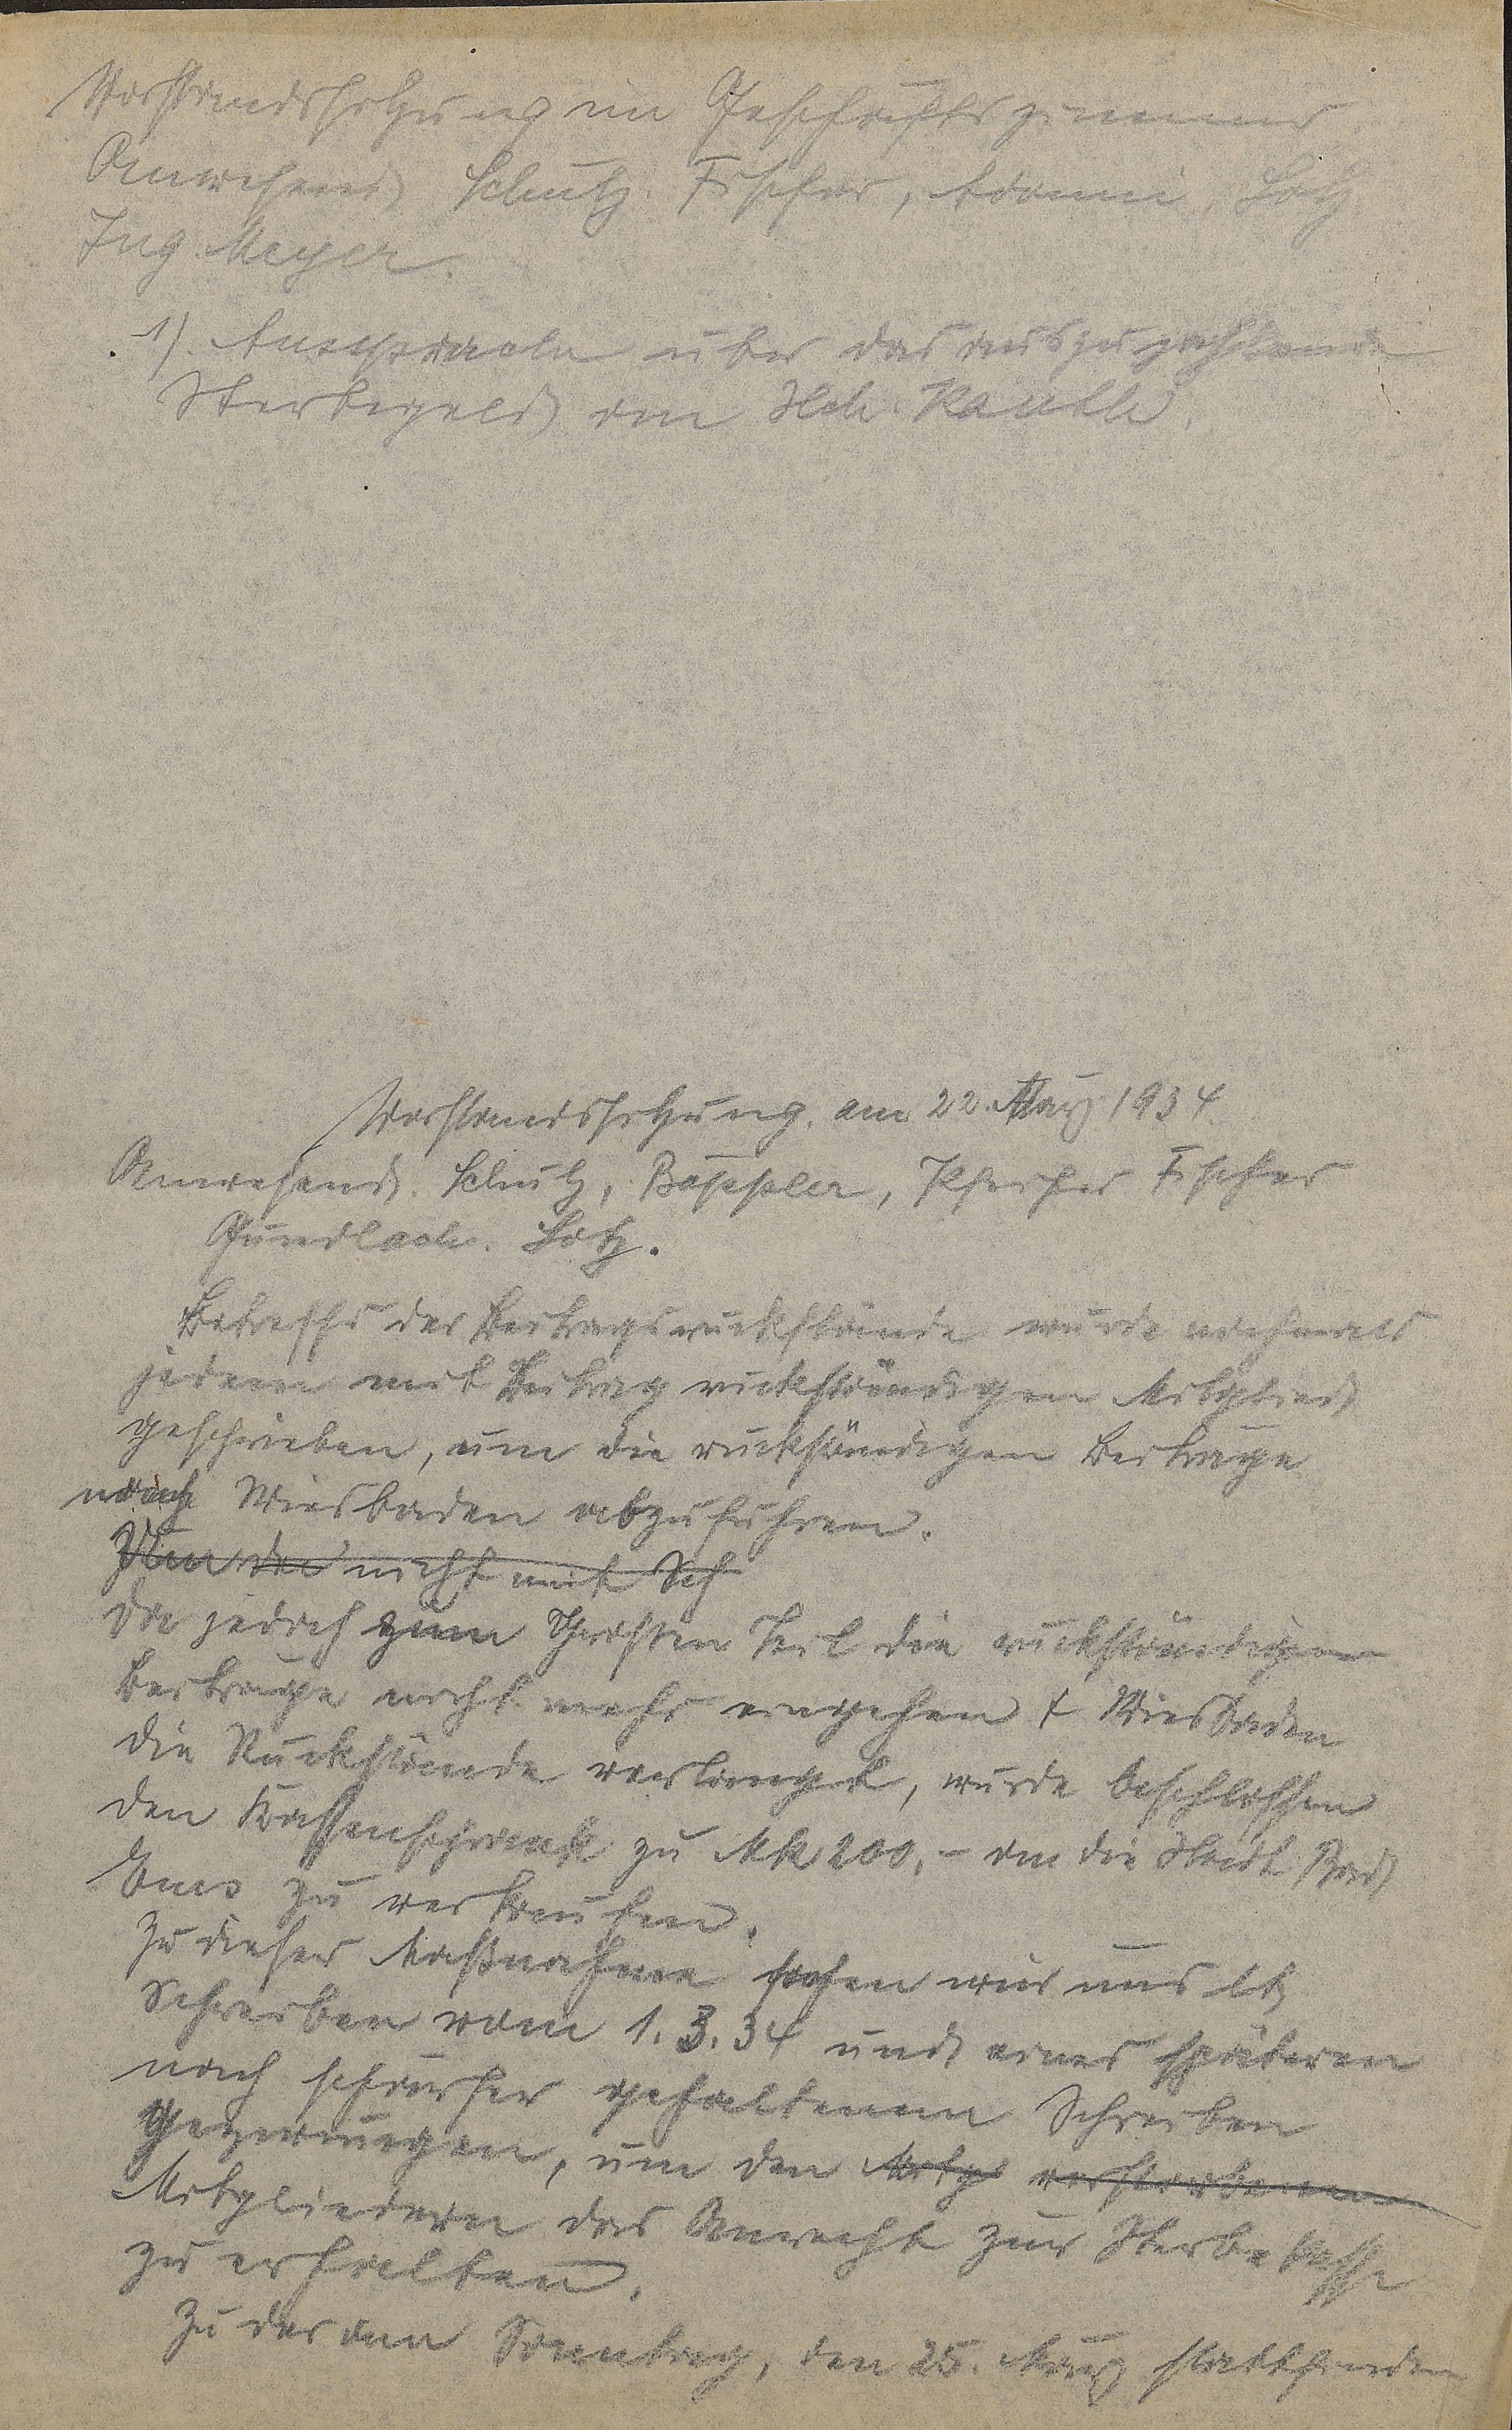 Vorstandssitzung im Geschäftszimmer
Anwesend Schutz. Fischer, Adami, Lotz
Ing. Meyer.
1). Aussprache über das auszuzahlende
Sterbegeld an Hch. Kauth.
Vorstandssitzung. am 22. März 1934
Anwesend. Schutz, Bäppler, Pfeifer Fischer
Gundlach. Lotz.
Betreffs der Beitragsrückstände wurde nochmals
jedem mit Beitrag rückständigen Mitglied
geschrieben, um die rückständigen Beiträge
nach Wiesbaden abzuführen.
Um die nicht mit Sch
Da jedoch zum Grossen Teil die rückständigen
Beiträge nicht mehr eingehen & Wiesbaden
die Rückstände verlangt, wurde beschlossen
den Kassenschrank zu Mk 200,- an die Stadt Bad
Ems zu verkaufen.
Zu dieser Maßnahme sahen wir uns lt
Schreiben vom 1.3.34 und eines späteren
noch schärfer gehaltenem Schreiben
gezwungen, um den Mitgl verstorbenen
Mitgliedern das Anrecht zur Sterbekasse
zu erhalten.
Zu der am Sonntag, den 25. März stattfinden